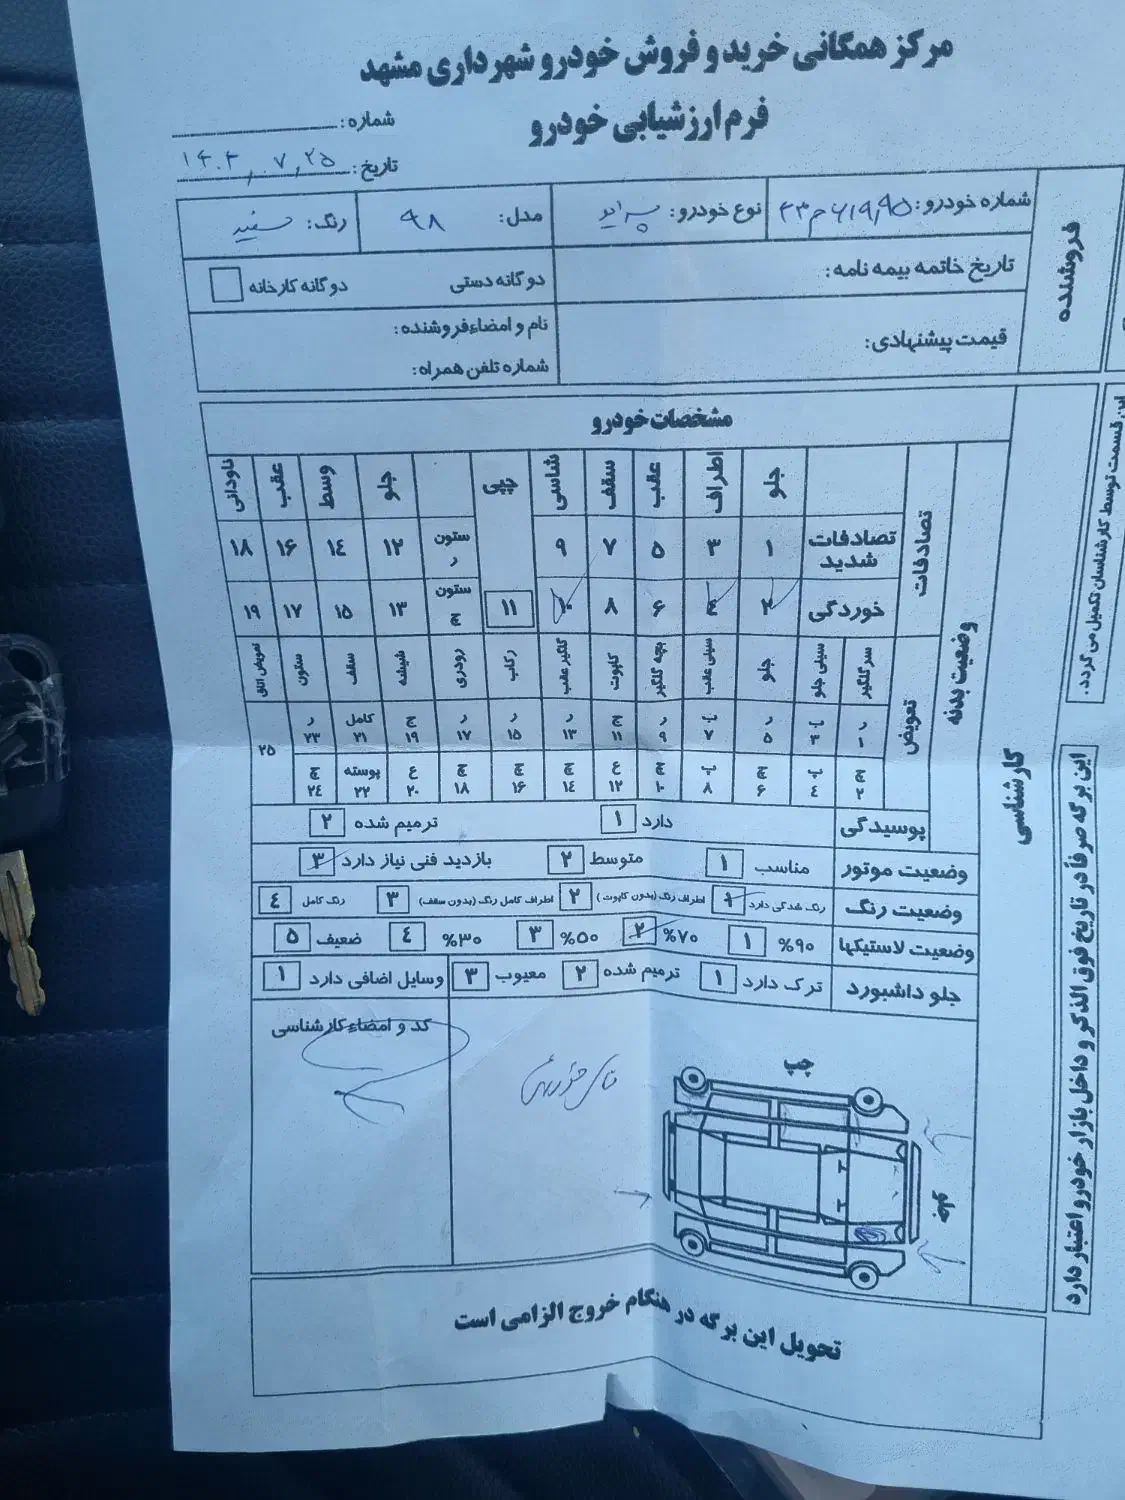 مرکز همگانی خرید و فروش خودرو شهرداری مشهد
فرم ارزشیابی خودرو
شماره:
تاریخ: ۱۴۰۳,۰۷,۲۵
فروشنده
شماره خودرو:
نوع خودرو: پراید
مدل: ۹۸
رنگ: سفید
تاریخ خاتمه بیمه نامه:
دوگانه دستی
دوگانه کارخانه
قیمت پیشنهادی:
نام و امضاء فروشنده:
شماره تلفن همراه:
این قسمت توسط کارشناسان تکمیل می گردد.
مشخصات خودرو
کارشناسی
وضعیت بدنه
تصادفات
جلو اطراف عقب سقف شاسی پپی جلو وسط عقب ناودانی
تصادفات شدید ۱ ۳ ۵ ۷ ۹ ستون ر ۱۲ ۱۴ ۱۶ ۱۸
خوردگی ۲ ۴ ۶ ۸ ۱۰ ۱۱ ستون چ ۱۳ ۱۵ ۱۷ ۱۹
تعویض
سرگلگیر سینی جلو جلو سینی عقب بچه گلگیر کاپوت گلگیر عقب رکاب رودری شیشه سقف ستون تعویض اتاق
ر ۱ ب ۳ ر ۵ ب ۷ ر ۹ ج ۱۱ ر ۱۳ ر ۱۵ ر ۱۷ ج ۱۹ کامل ۲۱ ر ۲۳ ۲۵
چ ۲ پ ۴ چ ۶ پ ۸ چ ۱۰ ع ۱۲ چ ۱۴ چ ۱۶ چ ۱۸ ع ۲۰ پوسته ۲۲ چ ۲۴
پوسیدگی دارد ۱ ترمیم شده ۲
وضعیت موتور مناسب ۱ متوسط ۲ بازدید فنی نیاز دارد ۳
وضعیت رنگ رنگ شدگی دارد ۱ اطراف رنگ (بدون کاپوت) ۲ اطراف کامل رنگ (بدون سقف) ۳ رنگ کامل ۴
وضعیت لاستیکها ۹۰% ۱ ۷۰% ۲ ۵۰% ۳ ۳۰% ۴ ضعیف ۵
جلو داشبورد ترک دارد ۱ ترمیم شده ۲ معیوب ۳ وسایل اضافی دارد ۱
کد و امضاء کارشناسی
چپ
این برگه صرفاً در تاریخ فوق الذکر و داخل بازار خودرو اعتبار دارد
تحویل این برگه در هنگام خروج الزامی است